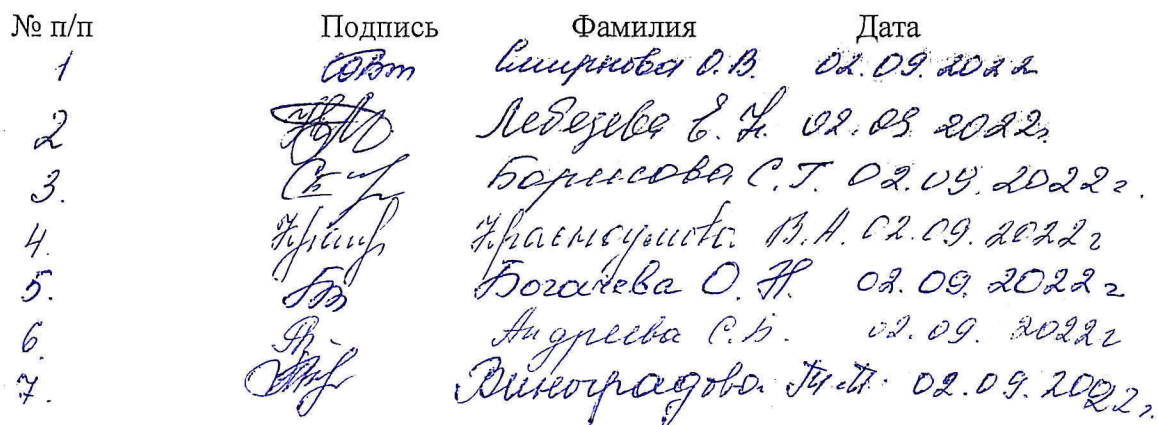 № п/п Подпись Фамилия Дата
1 Смирнова О.В. 02.09.2022
2 Лебедева Е.Н. 02.09.2022г.
3. Борисова С.Г. 02.09.2022г.
4. В.А. 02.09.2022г
5. Богачева О.Н. 02.09.2022г
6. Андреева С.В. 02.09.2022г
7. Виноградова 02.09.2022г.